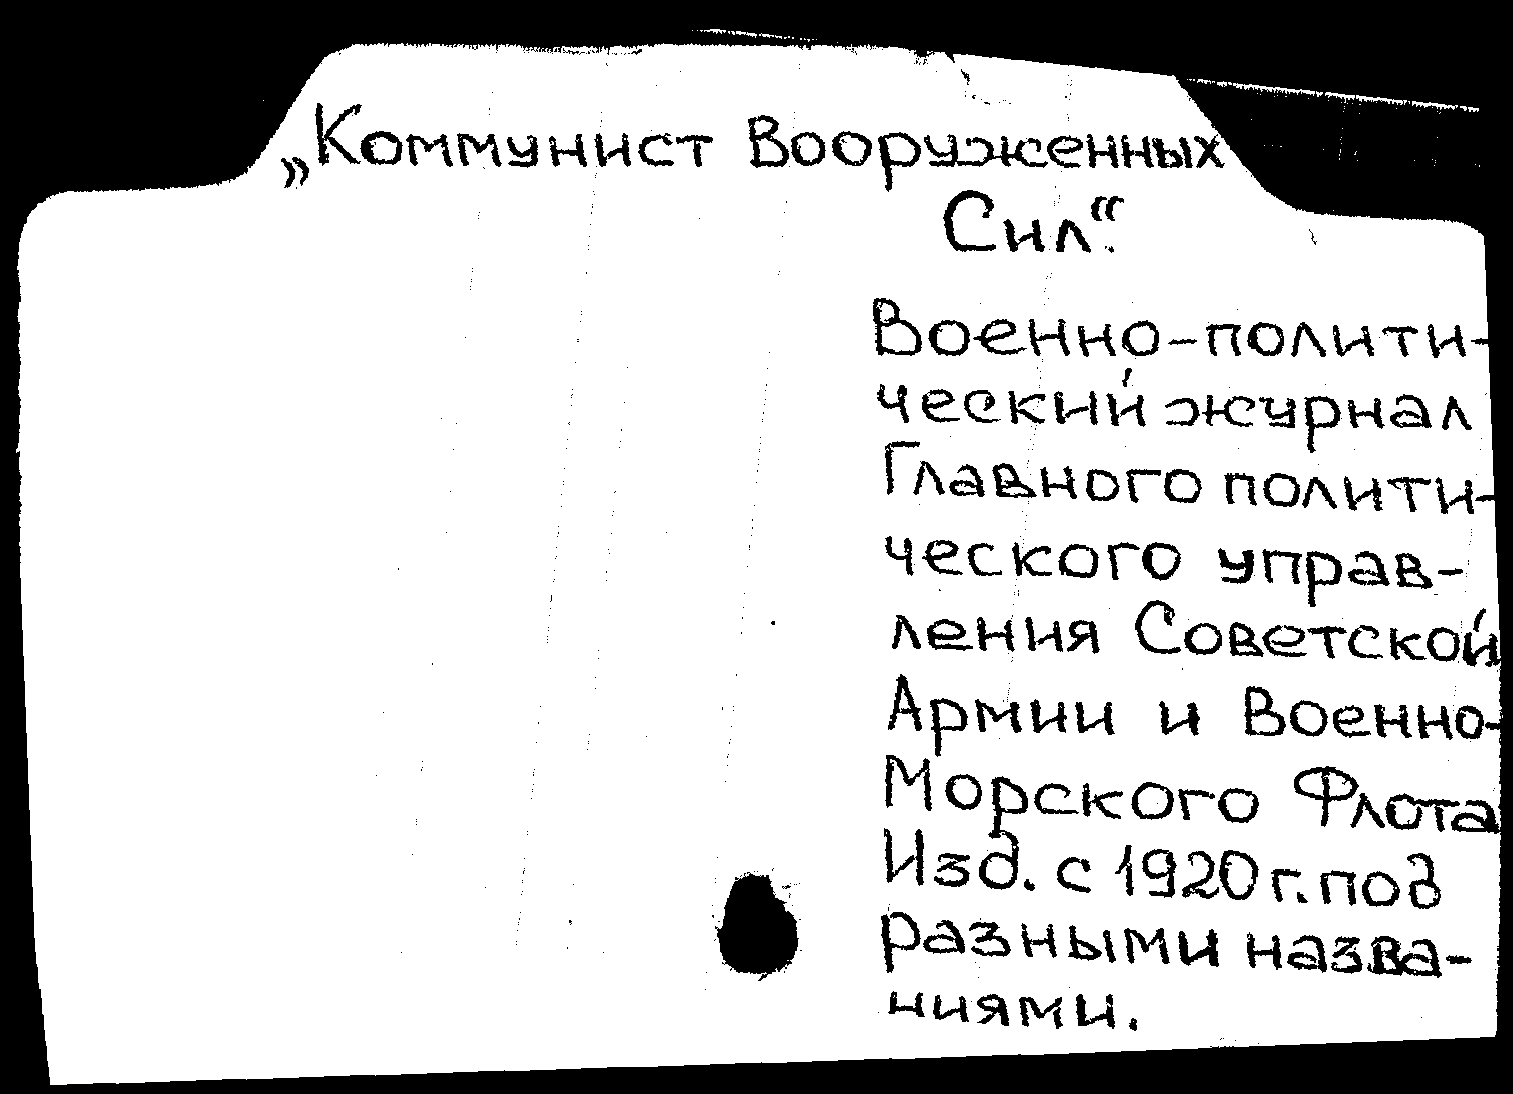 „Коммунист Вооруженных
Сил“.
Военно-полити-
ческий журнал
Главного полити-
ческого управ-
ления Советской
Армии и Военно-
Морского Флота
Изд. с 1920 г. под
разными назва-
ниями.